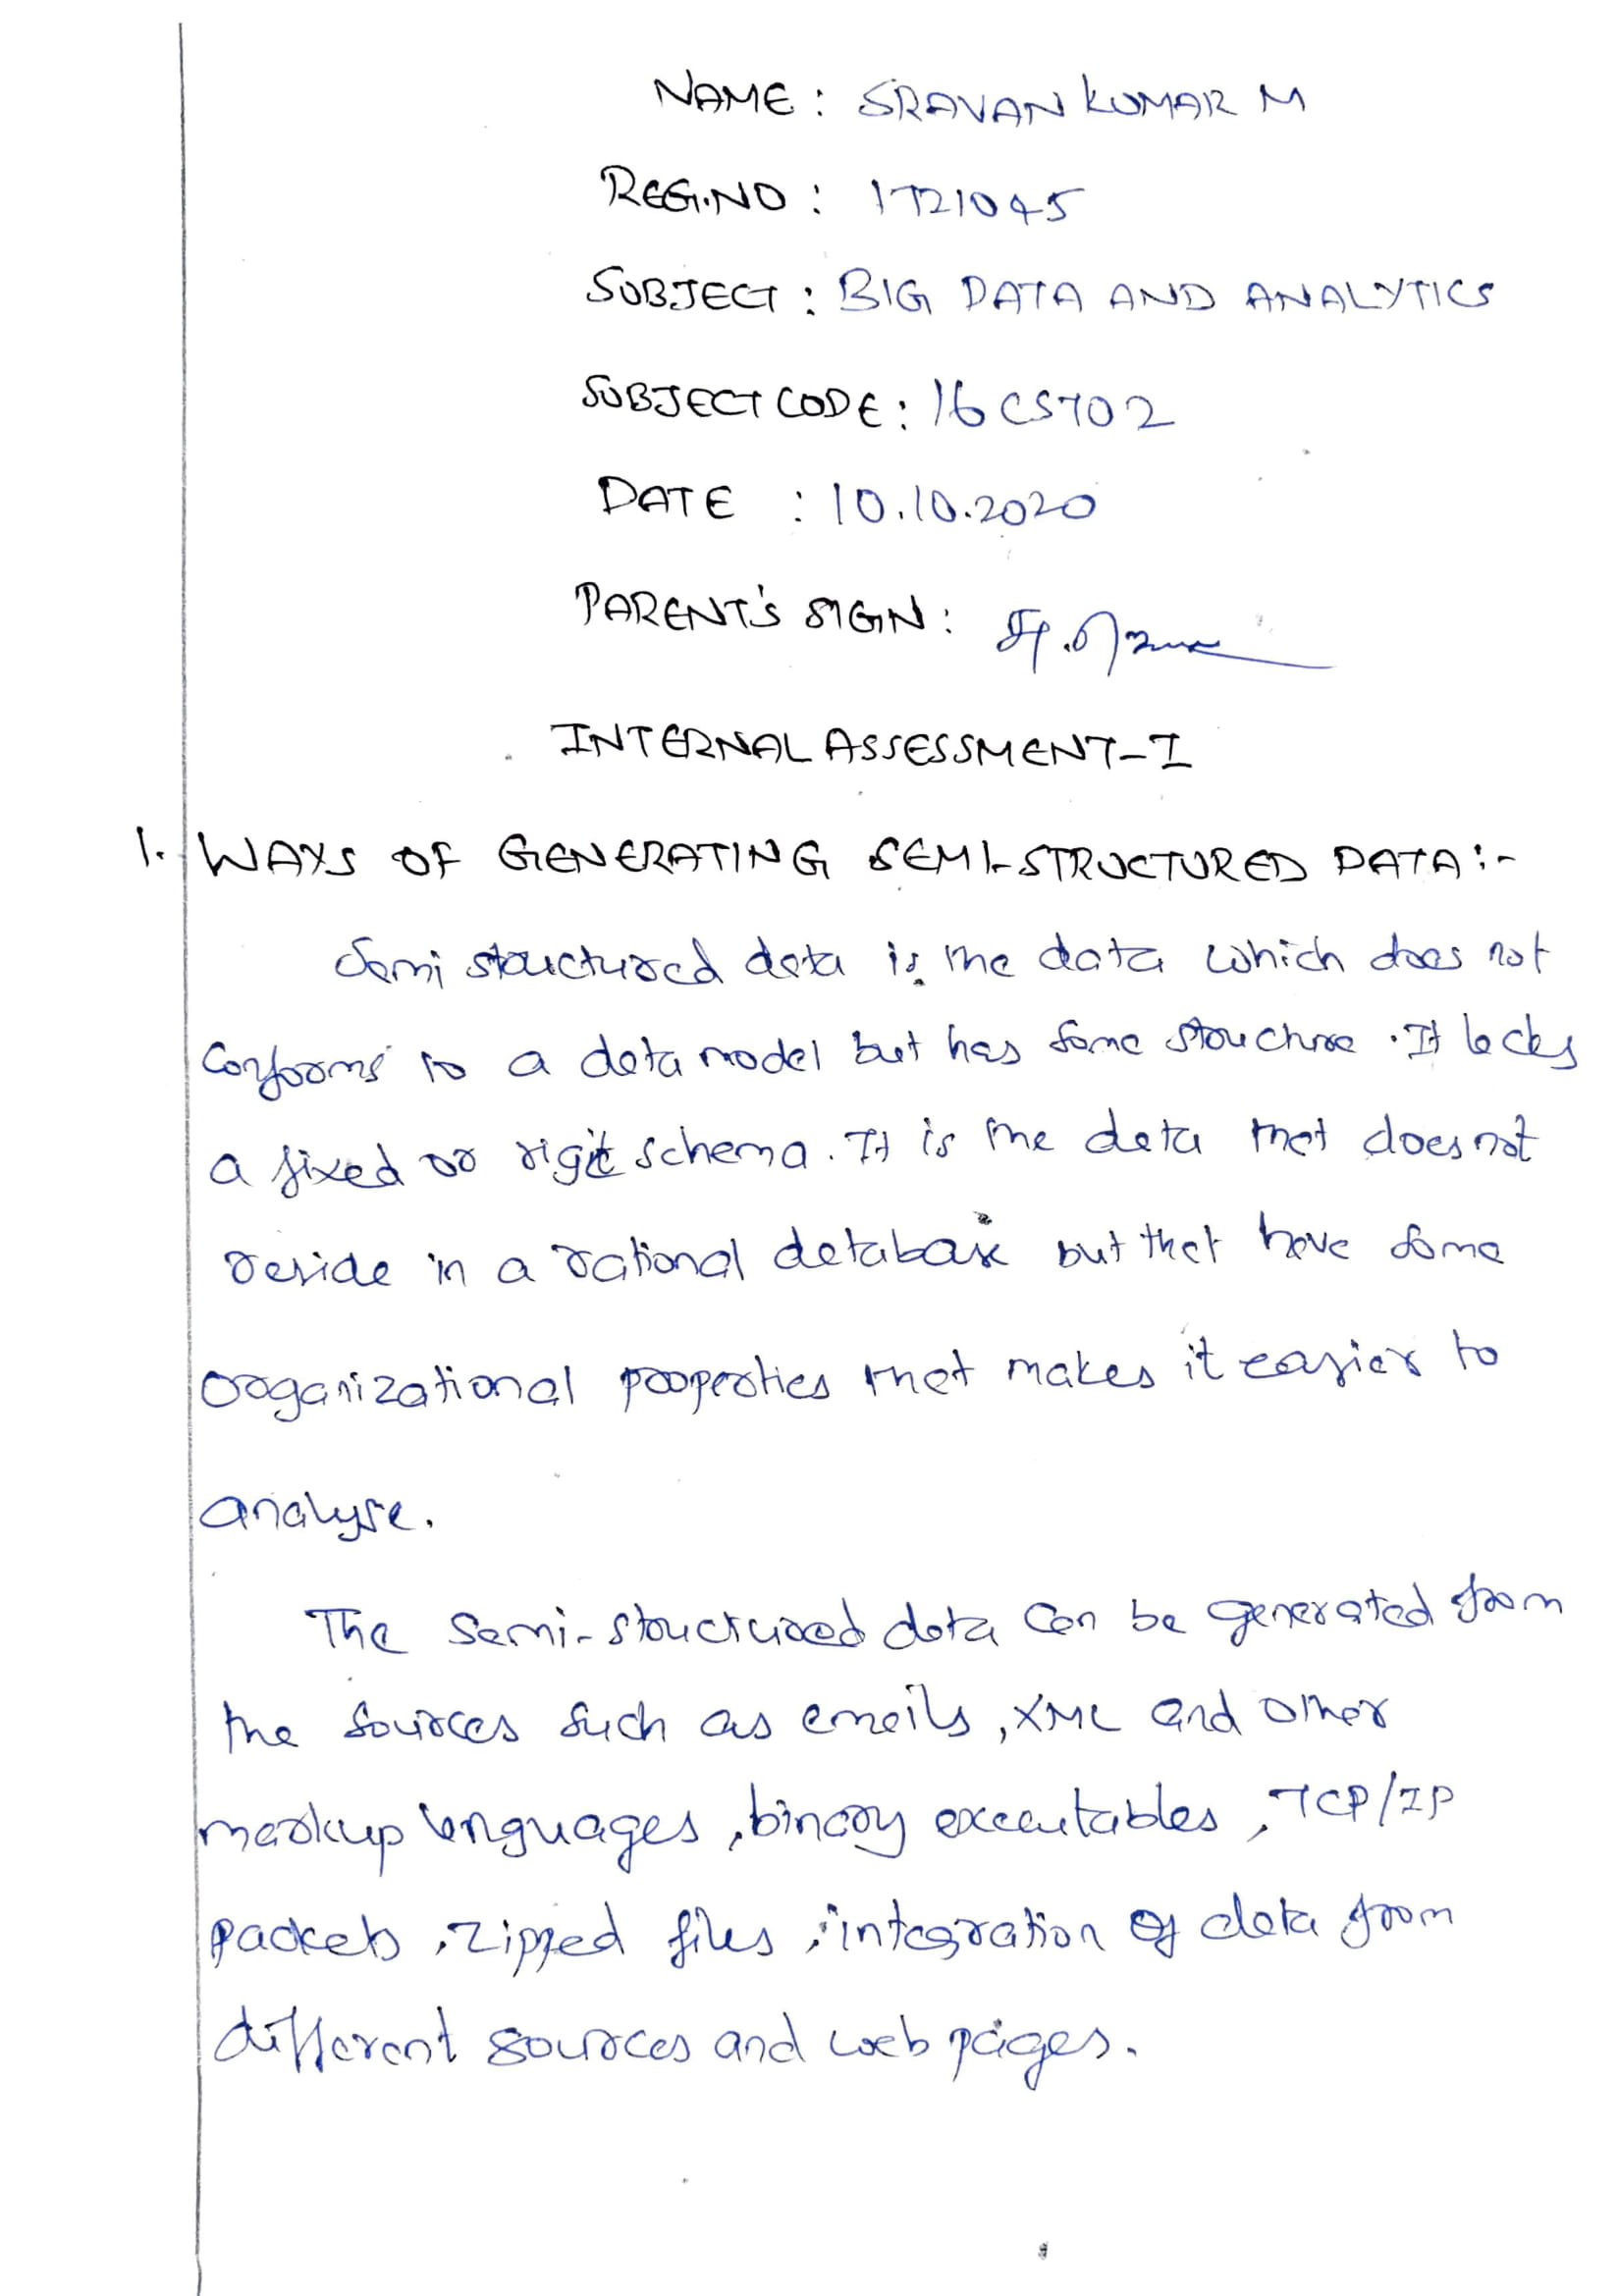 NAME : SRAVAN KUMAR M
REG.NO : 1721045
SUBJECT : BIG DATA AND ANALYTICS
SUBJECT CODE : 16CS702
DATE : 10.10.2020
PARENT'S SIGN :
INTERNAL ASSESSMENT-I
1. WAYS OF GENERATING SEMI-STRUCTURED DATA :-
Semi structured data is the data which does not
conforms to a data model but has some structure . It lacks
a fixed or rigit schema. It is the data that does not
reside in a rational database but that have some
organizational properties that makes it easier to
analyse.
The semi-structured data can be generated from
the sources such as emails, XML and other
markup languages, binary executables, TCP/IP
packets, zipped files, integration of data from
different sources and web pages.